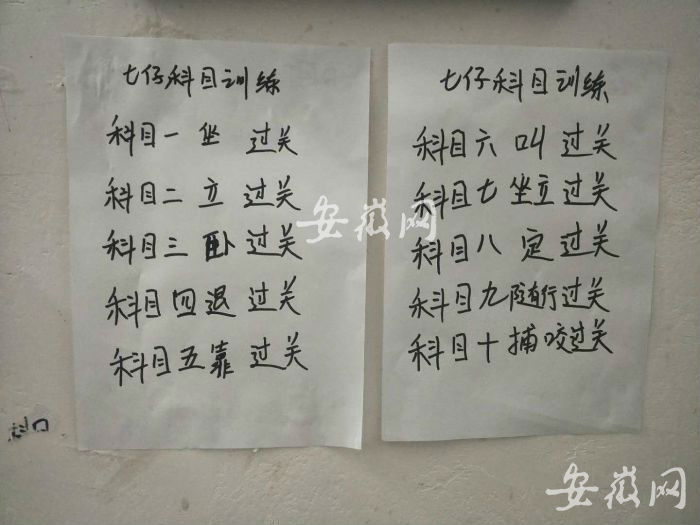 七仔科目训练
科目一 坐 过关
科目二 立 过关
科目三 卧 过关
科目四 退 过关
科目五 靠 过关
七仔科目训练
科目六 叫 过关
科目七 坐立 过关
科目八 定 过关
科目九 随行 过关
科目十 捕咬 过关
安徽网
安徽网